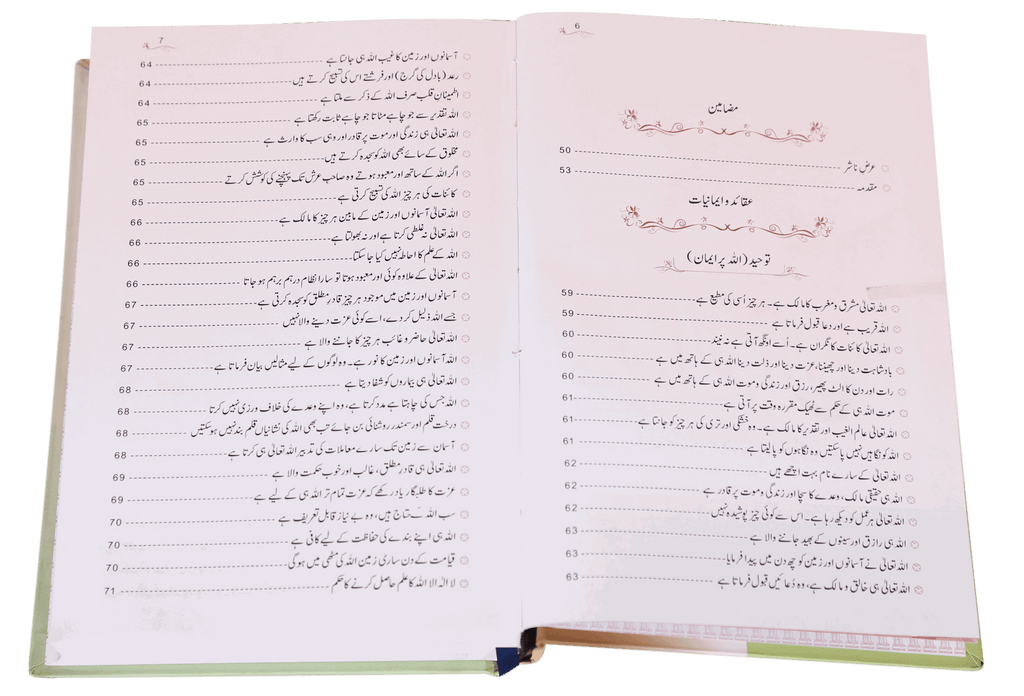 6
مضامین
عرض ناشر 50
مقدمہ 53
عقائد و ایمانیات
توحید (اللہ پر ایمان)
اللہ تعالیٰ مشرق و مغرب کا مالک ہے۔ ہر چیز اُسی کی مطیع ہے 59
اللہ قریب ہے اور دعا قبول فرماتا ہے 59
اللہ تعالیٰ کائنات کا نگران ہے۔ اُسے اونگھ آتی ہے نہ نیند 60
بادشاہت دینا اور چھیننا، عزت دینا اور ذلت دینا اللہ ہی کے ہاتھ میں ہے 60
رات اور دن کا الٹ پھیر، رزق اور زندگی و موت اللہ ہی کے ہاتھ میں ہے 60
موت اللہ ہی کے حکم سے ٹھیک مقررہ وقت پر آتی ہے 61
اللہ تعالیٰ عالم الغیب اور تقدیر کا مالک ہے۔ وہ خشکی اور تری کی ہر چیز کو جانتا ہے 61
اللہ کو نگاہیں نہیں پاسکتیں وہ نگاہوں کو پالیتا ہے 61
اللہ تعالیٰ کے سارے نام بہت اچھے ہیں 62
اللہ ہی حقیقی مالک، وعدے کا سچا اور زندگی و موت پر قادر ہے 62
اللہ تعالیٰ ہر عمل کو دیکھ رہا ہے۔ اس سے کوئی چیز پوشیدہ نہیں 62
اللہ ہی رازق اور سینوں کے بھید جاننے والا ہے 63
اللہ تعالیٰ نے آسمانوں اور زمین کو چھ دن میں پیدا فرمایا 63
اللہ تعالیٰ ہی خالق و مالک ہے، وہ دُعائیں قبول فرماتا ہے 63
7
آسمانوں اور زمین کا غیب اللہ ہی جانتا ہے 64
رعد (بادل کی گرج) اور فرشتے اس کی تسبیح کرتے ہیں 64
اطمینانِ قلب صرف اللہ کے ذکر سے ملتا ہے 64
اللہ تقدیر سے جو چاہے مٹاتا جو چاہے ثابت رکھتا ہے 65
اللہ تعالیٰ ہی زندگی اور موت پر قادر اور وہی سب کا وارث ہے 65
مخلوق کے سائے بھی اللہ کو سجدہ کرتے ہیں 65
اگر اللہ کے ساتھ اور معبود ہوتے وہ صاحب عرش تک پہنچنے کی کوشش کرتے 65
کائنات کی ہر چیز اللہ کی تسبیح کرتی ہے 65
اللہ تعالیٰ آسمانوں اور زمین کے مابین ہر چیز کا مالک ہے 66
اللہ تعالیٰ نہ غلطی کرتا ہے اور نہ بھولتا ہے 66
اللہ کے علم کا احاطہ نہیں کیا جا سکتا 66
اللہ تعالیٰ کے علاوہ کوئی اور معبود ہوتا تو سارا نظام درہم برہم ہو جاتا 66
آسمانوں اور زمین میں موجود ہر چیز قادر مطلق کو سجدہ کرتی ہے 67
جسے اللہ ذلیل کر دے، اسے کوئی عزت دینے والا نہیں 67
اللہ تعالیٰ حاضر و غائب ہر چیز کا جاننے والا ہے 67
اللہ آسمانوں اور زمین کا نور ہے۔ وہ لوگوں کے لیے مثالیں بیان فرماتا ہے 67
اللہ تعالیٰ ہی بیماروں کو شفا دیتا ہے 68
اللہ جس کی چاہتا ہے مدد کرتا ہے، وہ اپنے وعدے کی خلاف ورزی نہیں کرتا 68
درخت قلم اور سمندر روشنائی بن جائے تب بھی اللہ کی نشانیاں قلم بند نہیں ہو سکتیں 68
آسمان سے زمین تک سارے معاملات کی تدبیر اللہ تعالیٰ ہی کرتا ہے 68
اللہ تعالیٰ ہی قادر مطلق، غالب اور خوب حکمت والا ہے 69
عزت کا طلبگار یاد رکھے کہ عزت تمام تر اللہ ہی کے لیے ہے 69
سب اللہ کے محتاج ہیں، وہ بے نیاز قابل تعریف ہے 70
اللہ ہی اپنے بندے کی حفاظت کے لیے کافی ہے 70
قیامت کے دن ساری زمین اللہ کی مٹھی میں ہوگی 70
لا الٰہ الا اللہ کا علم حاصل کرنے کا حکم 71